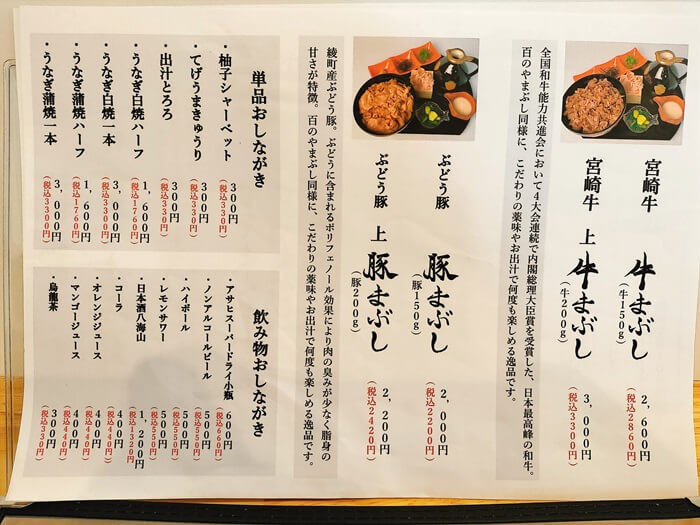 宮崎牛 牛まぶし
(牛150g)
2,600円
(税込2860円)
宮崎牛 上 牛まぶし
(牛200g)
3,000円
(税込3300円)
全国和牛能力共進会において4大会連続で内閣総理大臣賞を受賞した、日本最高峰の和牛。
百のやまぶし同様に、こだわりの薬味やお出汁で何度も楽しめる逸品です。
ぶどう豚 豚まぶし
(豚150g)
2,000円
(税込2200円)
ぶどう豚 上 豚まぶし
(豚200g)
2,200円
(税込2420円)
綾町産ぶどう豚。ぶどうに含まれるポリフェノール効果により肉の臭みが少なく脂身の
甘さが特徴。百のやまぶし同様に、こだわりの薬味やお出汁で何度も楽しめる逸品です。
単品おしながき
・柚子シャーベット 300円
(税込330円)
・てげうまきゅうり 300円
(税込330円)
・出汁とろろ 300円
(税込330円)
・うなぎ白焼ハーフ 1,600円
(税込1760円)
・うなぎ白焼一本 3,000円
(税込3300円)
・うなぎ蒲焼ハーフ 1,600円
(税込1760円)
・うなぎ蒲焼一本 3,000円
(税込3300円)
飲み物おしながき
・アサヒスーパードライ小瓶 600円
(税込660円)
・ノンアルコールビール 500円
(税込550円)
・ハイボール 500円
(税込550円)
・レモンサワー 500円
(税込550円)
・日本酒八海山 1,200円
(税込1320円)
・コーラ 400円
(税込440円)
・オレンジジュース 400円
(税込440円)
・マンゴージュース 400円
(税込440円)
・烏龍茶 300円
(税込330円)